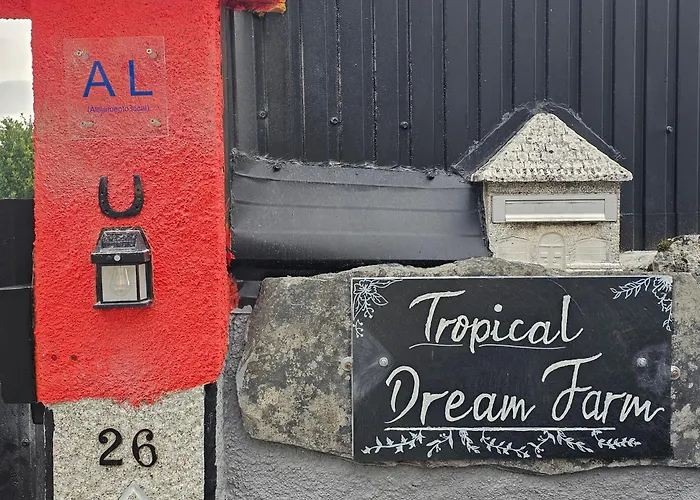 AL
(Alojamento local)
26
Tropical
Dream Farm